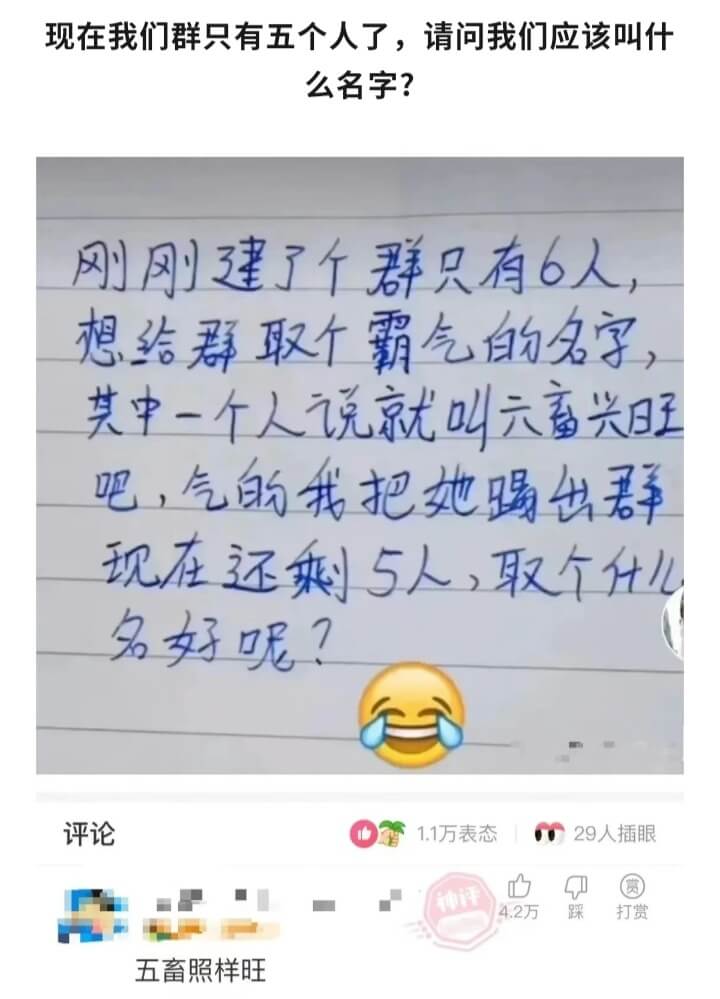 现在我们群只有五个人了，请问我们应该叫什
么名字?
刚刚建了个群只有6人，
想给群取个霸气的名字，
其中一个人说就叫六畜兴旺
吧，气的我把她踢出群
现在还剩5人，取个什么
名好呢？
评论
1.1万表态
29人插眼
神评
4.2万
踩
赏
打赏
五畜照样旺